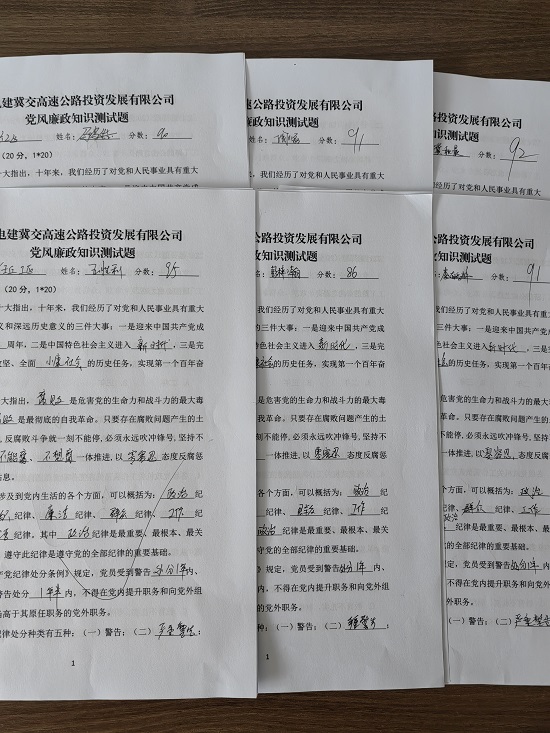 电建冀交高速公路投资发展有限公司
党风廉政知识测试题
姓名： 分数：90
（20 分，1*20）
十大指出，十年来，我们经历了对党和人民事业具有重大
公路投资发展有限公司
政知识测试题
姓名： 分数：91
我们经历了对党和人民事业具有重大
资发展有限公司
识测试题
分数：92
了对党和人民事业具有重大
电建冀交高速公路投资发展有限公司
党风廉政知识测试题
姓名： 分数：95
（20 分，1*20）
十大指出，十年来，我们经历了对党和人民事业具有重大
义和深远历史意义的三件大事：一是迎来中国共产党成
周年，二是中国特色社会主义进入 新时代，三是完
攻坚、全面 小康社会 的历史任务，实现第一个百年奋
大指出，腐败 是危害党的生命力和战斗力的最大毒
是最彻底的自我革命。只要存在腐败问题产生的土
反腐败斗争就一刻不能停，必须永远吹冲锋号，坚持不
不能腐、不想腐 一体推进，以 零容忍 态度反腐惩
涉及到党内生活的各个方面，可以概括为：政治 纪
纪律、廉洁 纪律、群众 纪律、工作 纪
纪律，其中 政治 纪律是最重要、最根本、最关
遵守此纪律是遵守党的全部纪律的重要基础。
产党纪律处分条例》规定，党员受到警告处分1年内、
警告处分 1年半 内，不得在党内提升职务和向党外组
任高于其原任职务的党外职务。
纪律处分种类有五种：（一）警告；（二）严重警告；
1
公路投资发展有限公司
政知识测试题
姓名： 分数：86
我们经历了对党和人民事业具有重大
的三件大事：一是迎来中国共产党成
色社会主义进入 新时代，三是完
的历史任务，实现第一个百年奋
是危害党的生命力和战斗力的最大毒
命。只要存在腐败问题产生的土
不能停，必须永远吹冲锋号，坚持不
一体推进，以 零容忍 态度反腐惩
各个方面，可以概括为：政治 纪
纪律、 纪律、工作 纪
政治 纪律是最重要、最根本、最关
党的全部纪律的重要基础。
》规定，党员受到警告处分1年内、
内，不得在党内提升职务和向党外组
党外职务。
种：（一）警告；（二）
1
资发展有限公司
识测试题
分数：91
了对党和人民事业具有重大
事：一是迎来中国共产党成
义进入 新时代，三是完
史任务，实现第一个百年奋
党的生命力和战斗力的最大毒
只要存在腐败问题产生的土
必须永远吹冲锋号，坚持不
推进，以 零容忍 态度反腐惩
可以概括为：政治 纪
纪律、群众 纪律、工作 纪
政治
是最重要、最根本、最关
部纪律的重要基础。
党员受到警告处分1年内、
不得在党内提升职务和向党外组
（一）警告；（二）严重警告